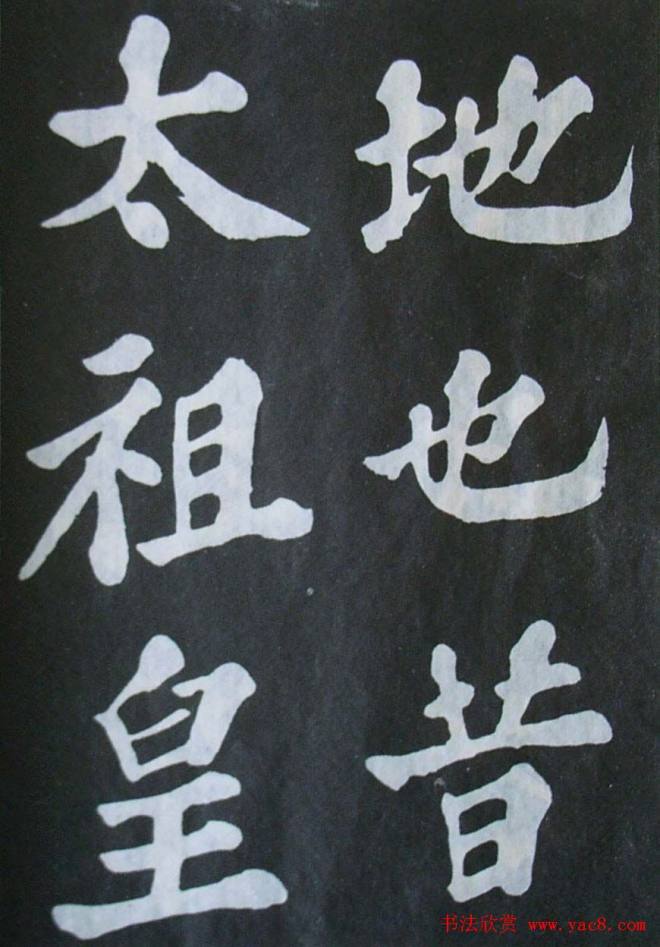 地也昔
太祖皇
书法欣赏 www.yac8.com